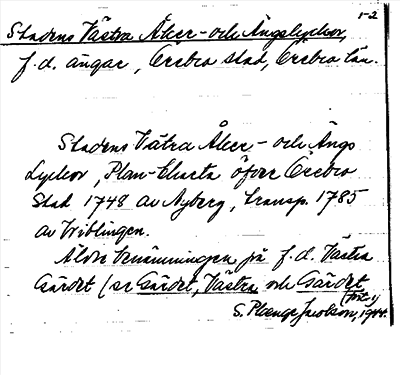 1-2
Stadens Västra Åker- och Ängslyckor,
f.d. ängar, Örebro stad, Örebro län.
Stadens Västra Åker- och Ängs
Lyckor, Plan-Charta öfver Örebro
Stad 1748 av Nyberg, transp. 1785
av Wiblingen.
Äldre benämningen på f.d. Västra
Gärdet (se Gärdet, Västra och Gärdet
S. Plænge Jacobson, 1944.